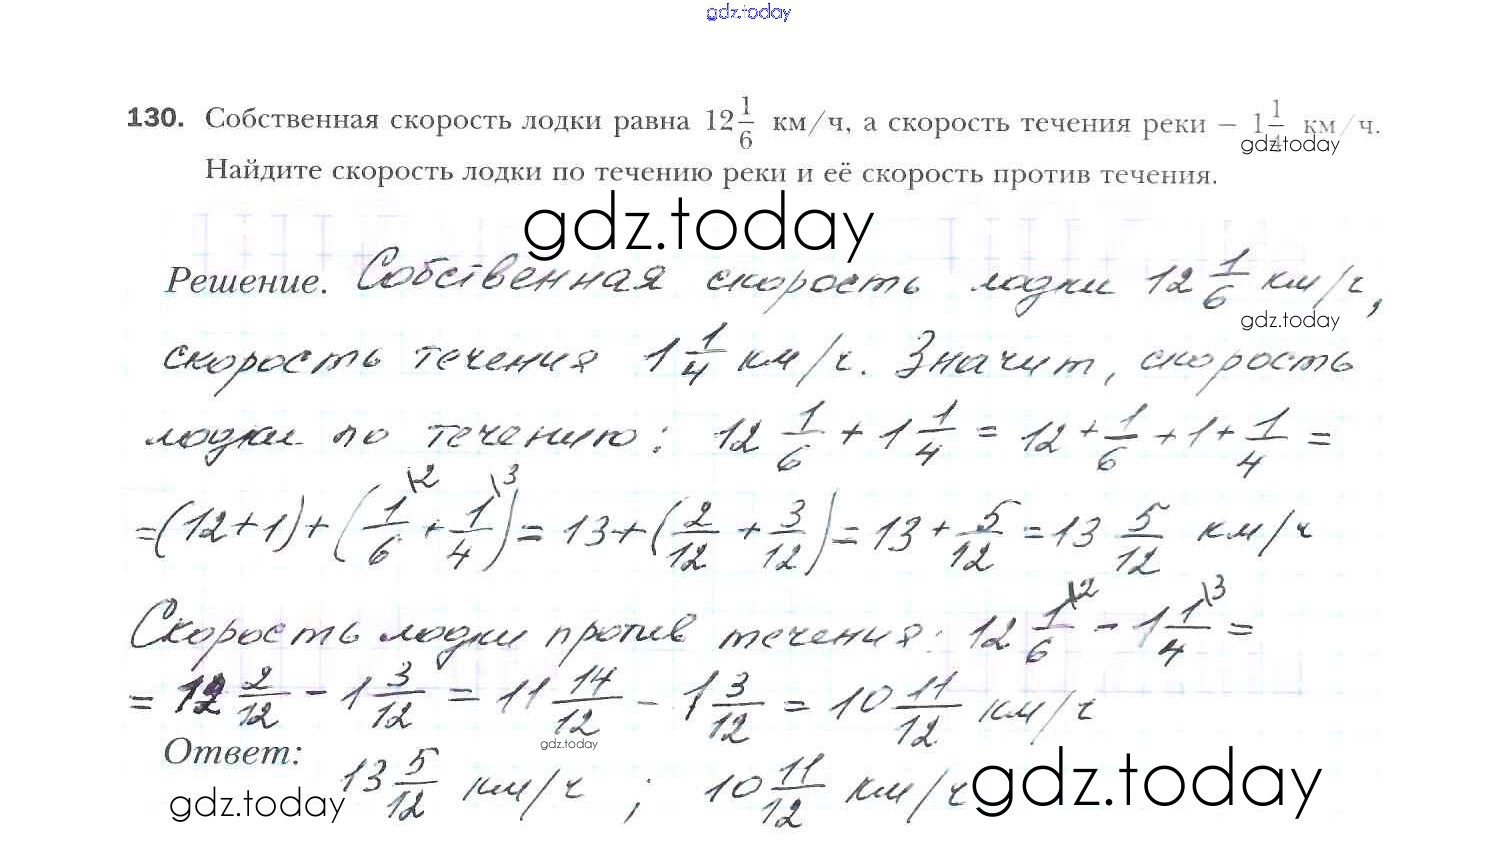 gdz.today
130. Собственная скорость лодки равна 12 1/6 км/ч, а скорость течения реки – 1 1/4 км/ч.
gdz.today
Найдите скорость лодки по течению реки и её скорость против течения.
gdz.today
Решение. Собственная скорость лодки 12 1/6 км/ч,
gdz.today
скорость течения 1 1/4 км/ч. Значит, скорость
лодки по течению: 12 1/6 + 1 1/4 = 12 + 1/6 + 1 + 1/4 =
= (12 + 1) + (1/6 \2 + 1/4 \3) = 13 + (2/12 + 3/12) = 13 + 5/12 = 13 5/12 км/ч
Скорость лодки против течения: 12 1/6 \2 – 1 1/4 \3 =
= 12 2/12 – 1 3/12 = 11 14/12 – 1 3/12 = 10 11/12 км/ч
gdz.today
Ответ: 13 5/12 км/ч ; 10 11/12 км/ч
gdz.today
gdz.today